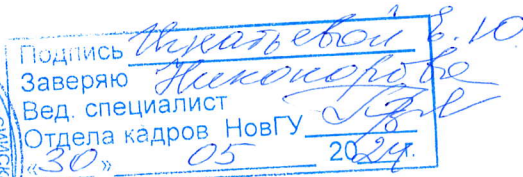 Подпись Игнатьевой Е. Ю
Заверяю Никонорова
Вед. специалист
Отдела кадров НовГУ
«30» 05 2024г.